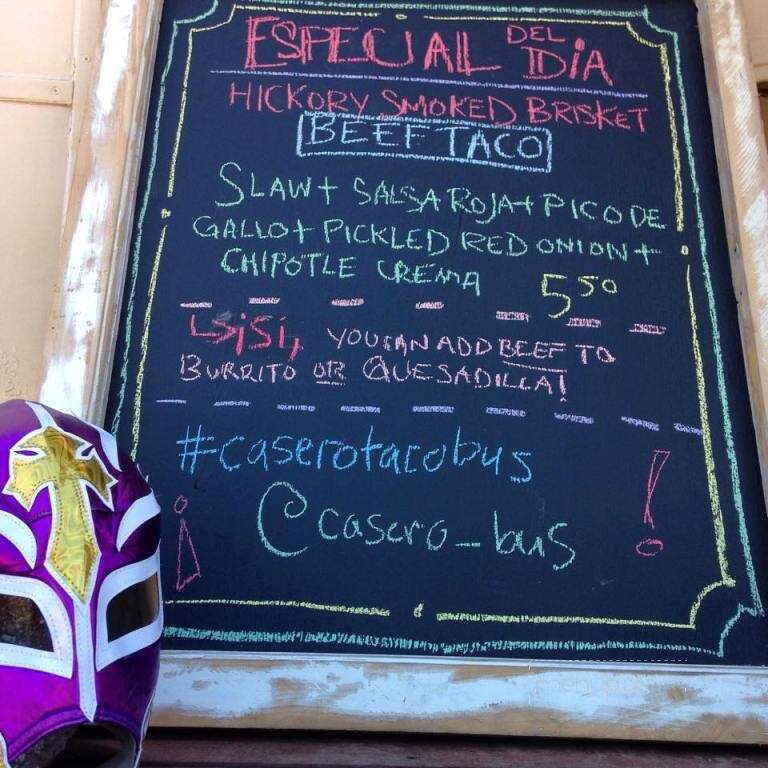 ESPECIAL DEL DIA
HICKORY SMOKED BRISKET
BEEF TACO
SLAW + SALSA ROJA + PICO DE
GALLO + PICKLED RED ONION +
CHIPOTLE CREMA 5.50
SiSi, YOU CAN ADD BEEF TO
BURRITO OR QUESADILLA!
#caserotacobus
@casero_bus